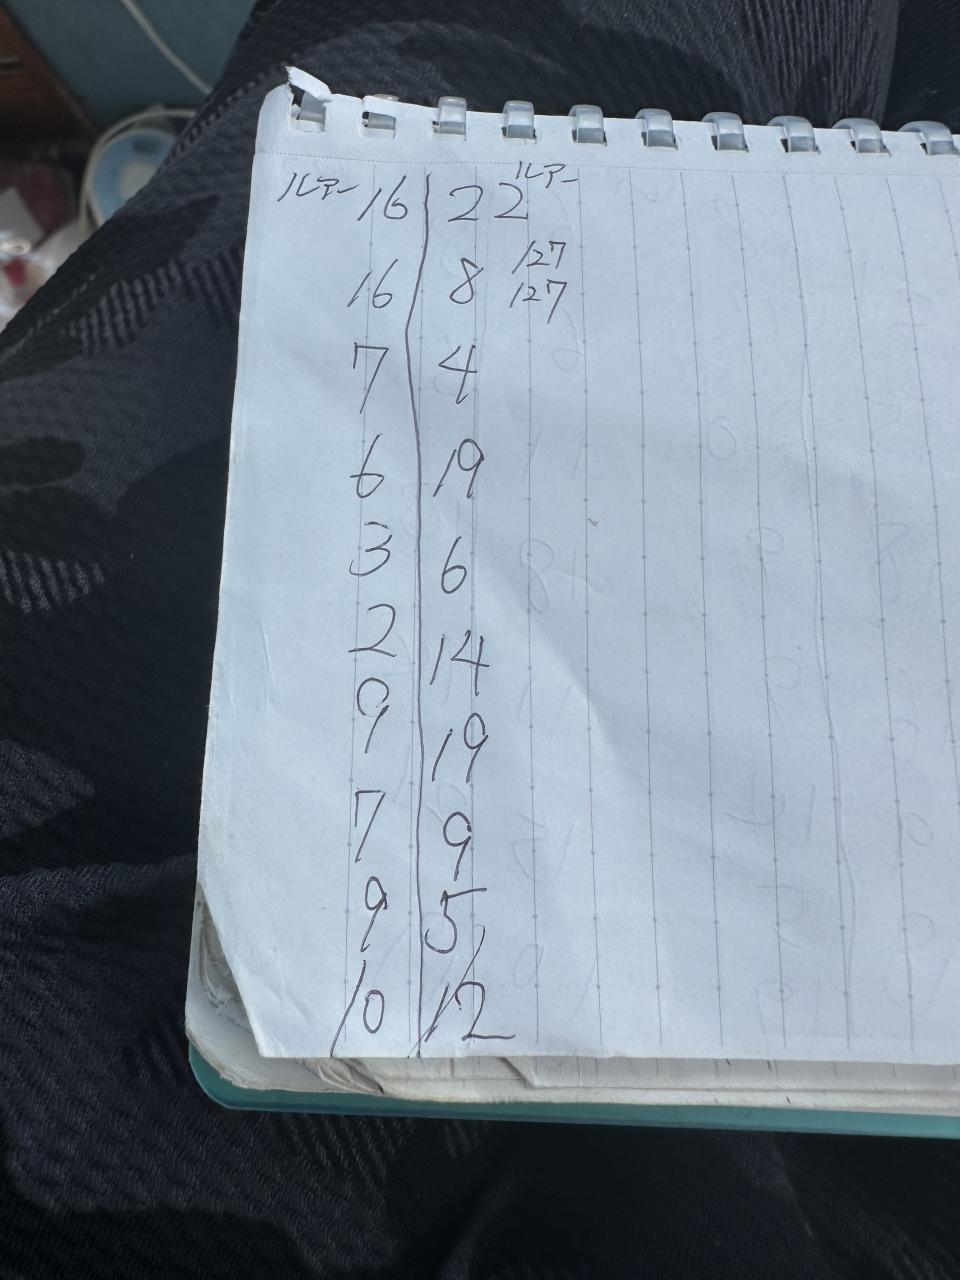 ルアー 16 22 ルアー
16 8 127
127
7 4
6 19
3 6
2 14
9 19
7 9
9 5
10 12